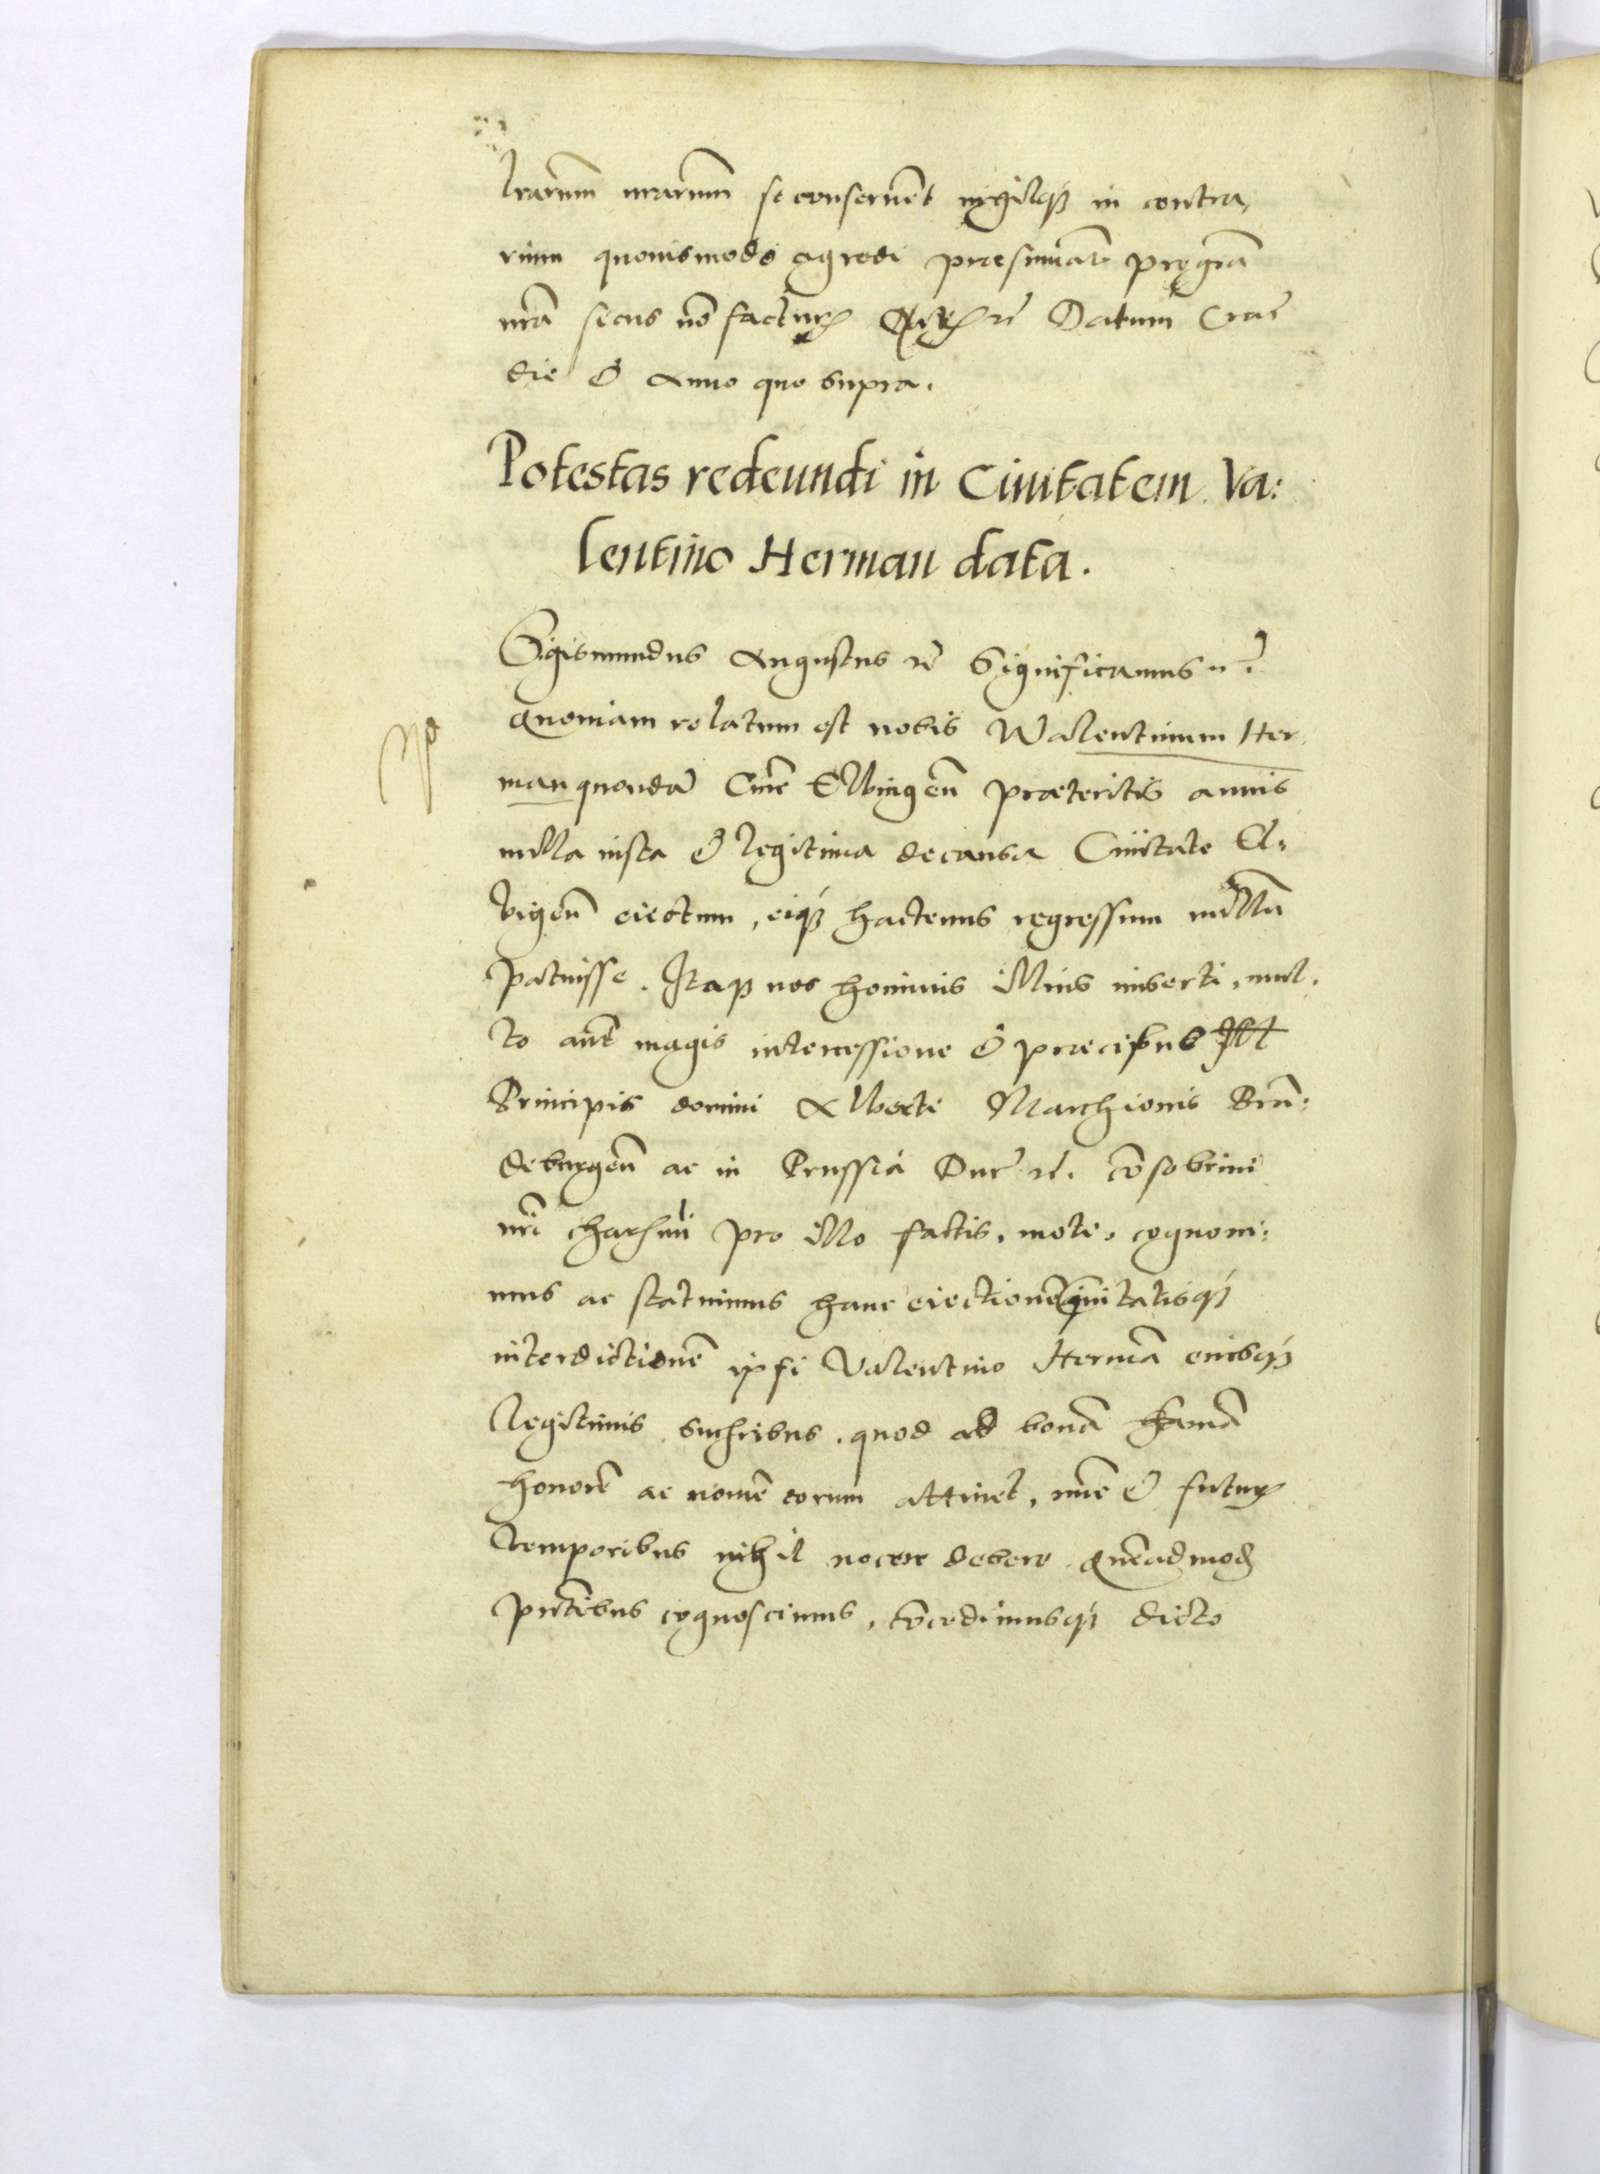 lrarum nrarum se conseruent nihilq3 in contra,
rium quouismodo agredi præsumat pro gra
nra secus no factur Datum Crac
die & Anno quo supra.
Potestas redeundi in Ciuitatem Va:
lentino Herman data.
Sigismundus Augustus rc Significamus rc.
Quoniam relatum est nobis Walentinum Her
man quondā Ciuē Elbingeñ præteritis annis
nulla iusta & legitima de causa Ciuitate El:
bigeñ eiectum, eiq3 hactenus regressum nullū
patuisse. Itaq3 nos hominis illius miserti, mul,
to aut magis intercessione & præcibus Ill
Principis domini Alberti Marchionis Brā:
deburgeñ ac in Prussia Duc rc. cōsobrini
nri charissimi pro illo factis, moti, cognoui:
mus ac statuimus hanc eiectionē Ciuitatisq3
interdictionē ipsi Valentino Hermā eiusq3
legitimis succribus, quod ad bonā famā
honorē ac nomē eorum attinet, nūc & futur
temporibus nihil nocere debere quēadmod
pntibus cognoscimus, cōcedimusq3 dicto